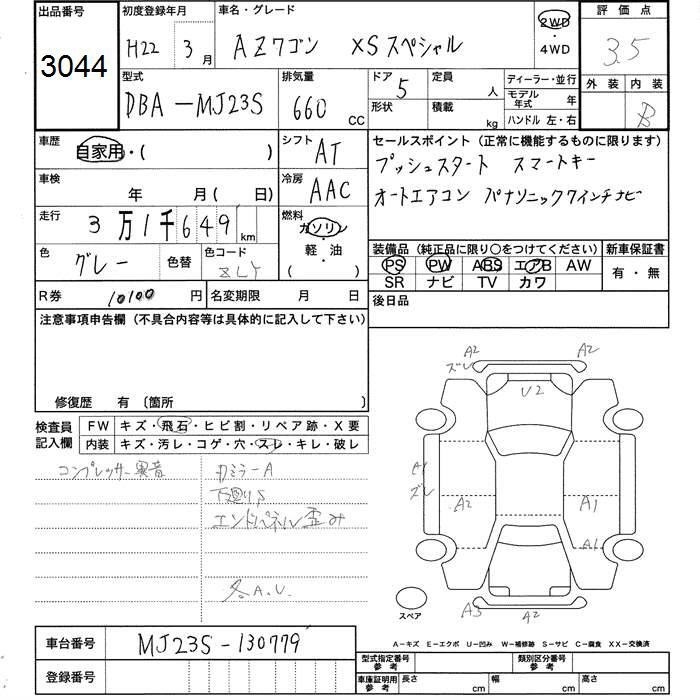 出品番号
3044
初度登録年月
H22年 3月
車名・グレード
AZワゴン XSスペシャル
2WD
・
4WD
評価点
3.5
外装 内装
B
型式
DBA-MJ23S
排気量
660 CC
ドア
5
形状
定員
人
積載
kg
ディーラー・並行
モデル年式 年
ハンドル 左・右
車歴
自家用・( )
シフト
AT
セールスポイント（正常に機能するものに限ります）
プッシュスタート スマートキー
オートエアコン パナソニック7インチナビ
車検
年 月( 日)
冷房
AAC
走行
3万1千649km
燃料
ガソリン
・
軽・油
( )
色
グレー
色替
色コード
ZLY
装備品（純正品に限り○をつけてください）
新車保証書
PS PW ABS エアB AW
SR ナビ TV カワ
有・無
R券
10100円
名変期限 月 日
後日品
注意事項申告欄（不具合内容等は具体的に記入して下さい）
修復歴 有〔箇所 〕
検査員
記入欄
FW キズ・飛石・ヒビ割・リペア跡・X要
内装 キズ・汚レ・コゲ・穴・スレ・キレ・破レ
コンプレッサー異音
カミラーA
下廻りS
エンドパネル歪み
各A.U.
A2
ズレ
A2
U2
A1
ズレ
A2
A1
A1
スペア
A3
A2
車台番号
MJ23S-130779
登録番号
A－キズ E－エクボ U－凹み W－補修跡 S－サビ C－腐食 XX－交換済
型式指定番号
参考
類別区分番号
参考
車庫証明用
参考
長さ cm
幅 cm
高さ cm